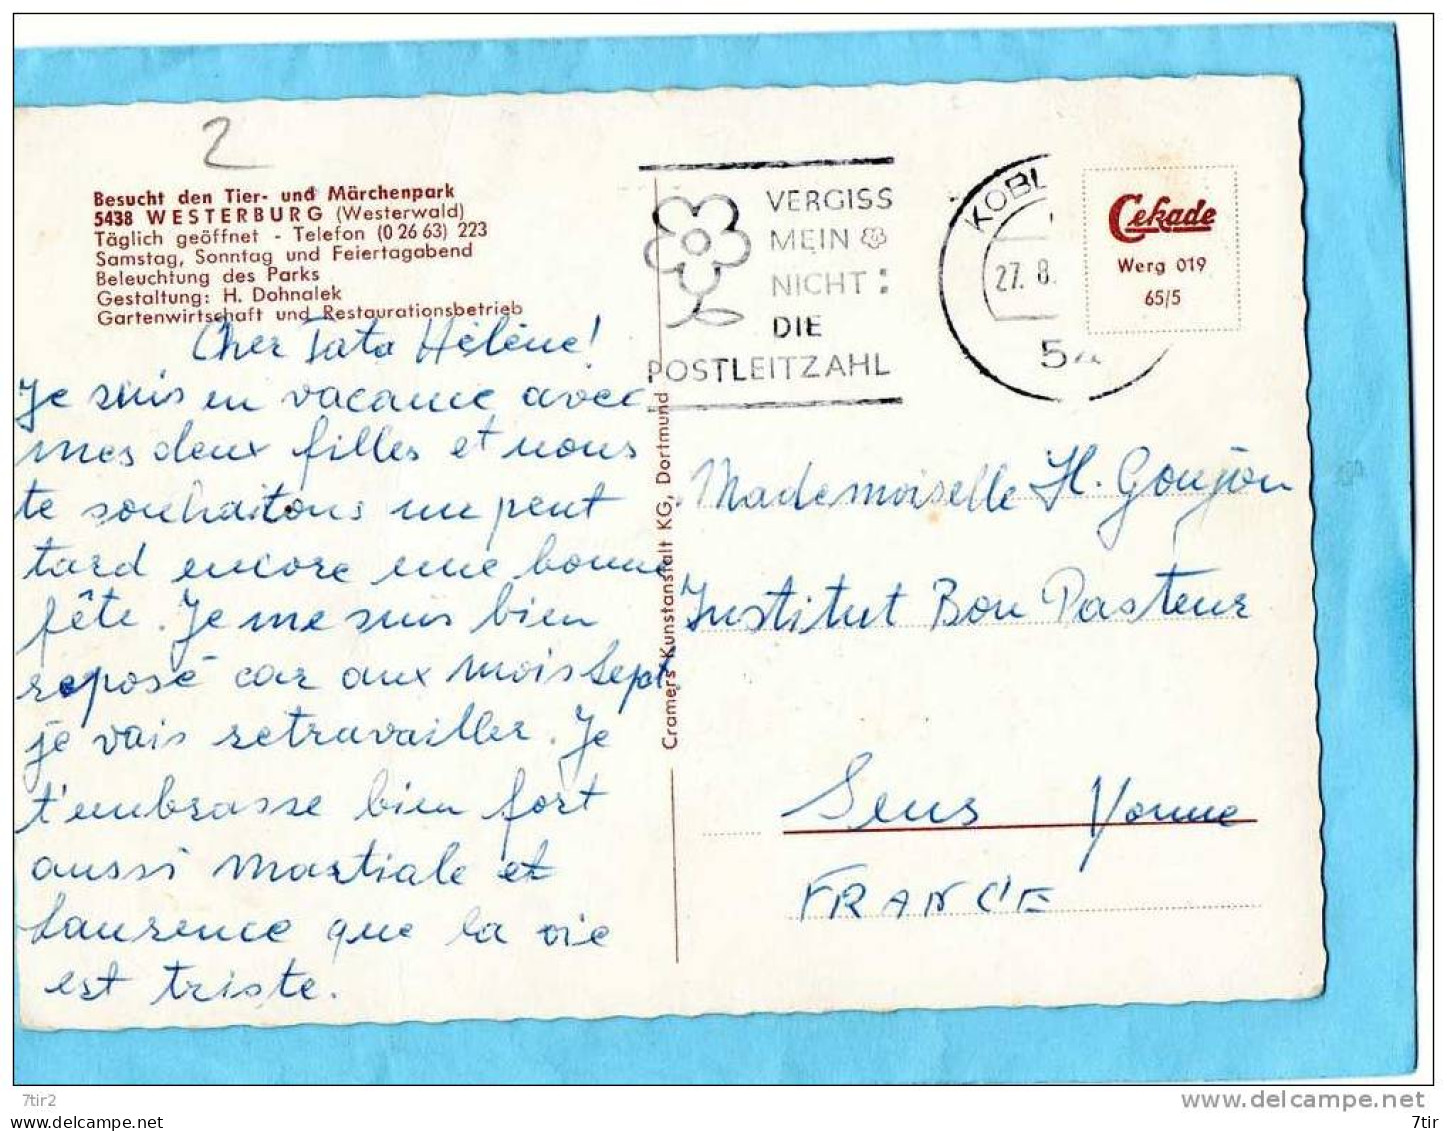 2
Besucht den Tier- und Märchenpark
5438 WESTERBURG (Westerwald)
Täglich geöffnet - Telefon (0 26 63) 223
Samstag, Sonntag und Feiertagabend
Beleuchtung des Parks
Gestaltung: H. Dohnalek
Gartenwirtschaft und Restaurationsbetrieb
Cher Tata Hélène!
Je suis en vacance avec
mes deux filles et nous
te souhaitons un peut
tard encore une bonne
fête. Je me suis bien
reposé car aux mois Sept.
je vais retravailler. Je
t'embrasse bien fort
aussi Martiale et
Laurence que la vie
est triste.
Cramers Kunstanstalt KG, Dortmund
VERGISS
MEIN
NICHT:
DIE
POSTLEITZAHL
KOBL
27. 8.
54
Cekade
Werg 019
65/5
Mademoiselle H. Goujon
Institut Bon Pasteur
Sens Yonne
FRANCE
7tir2
www.delcampe.net
https://www.delcampe.net/
7tir